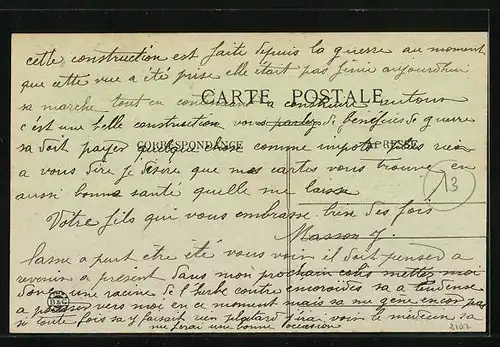 cette construction est faite depuis la guerre au moment
que cette vue a été prise elle était pas fénie aujourdhui
sa marche tout en continuant a construire autour
CARTE POSTALE
c'est une belle construction vous parlez de bénéfices de guerre
CORRESPONDANCE
ADRESSE
sa doit payer quelque chose comme impots plus rien
a vous dire je désire que mes cartes vous trouve en
aussi bonne santé quelle me laisse
13
Votre fils qui vous embrasse bien des fois
Masson J.
Lasse a peut etre été vous voir il doit pensed a
revenir a présent dans mon prochain colis mettez moi
donc une racine de l'herbe contre emoroides sa a tendense
B&G
a pousser vers moi en ce moment mais sa me gène encor pas
si toute fois sa y faisait rien plutard j'irai voir le médecin sa
me ferai une bonne occasion
2107